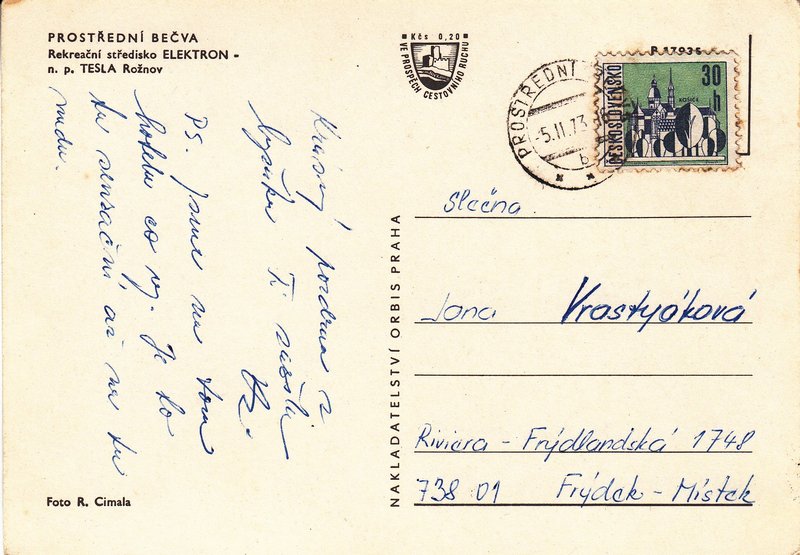 PROSTŘEDNÍ BEČVA
Rekreační středisko ELEKTRON -
n. p. TESLA Rožnov
Kčs 0,20
VE PROSPĚCH CESTOVNÍHO RUCHU
PROSTŘEDNÍ
-5.11.73
b
ČESKOSLOVENSKO
30 h
KOŠICE
Krásný pozdrav z
Ti zasílá
PS. Jsme na tom
hotelu co vy. Je to
tu senzační až na tu
nudu.
Slečna
Jana Vrostyáková
Riviera - Frýdlandská 1748
738 01 Frýdek - Místek
NAKLADATELSTVÍ ORBIS PRAHA
Foto R. Cimala